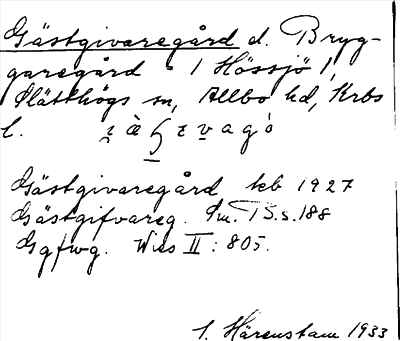 Gästgivaregård d. Bryg-
garegård i Hössjö 1,
Slätthögs sn, Allbo hd, Krbs
l.
Gästgivaregård kb 1927
Gästgifvareg. Sm. TB.s.188
Ggfwg. Wies II: 805.
1. Härenstam 1933